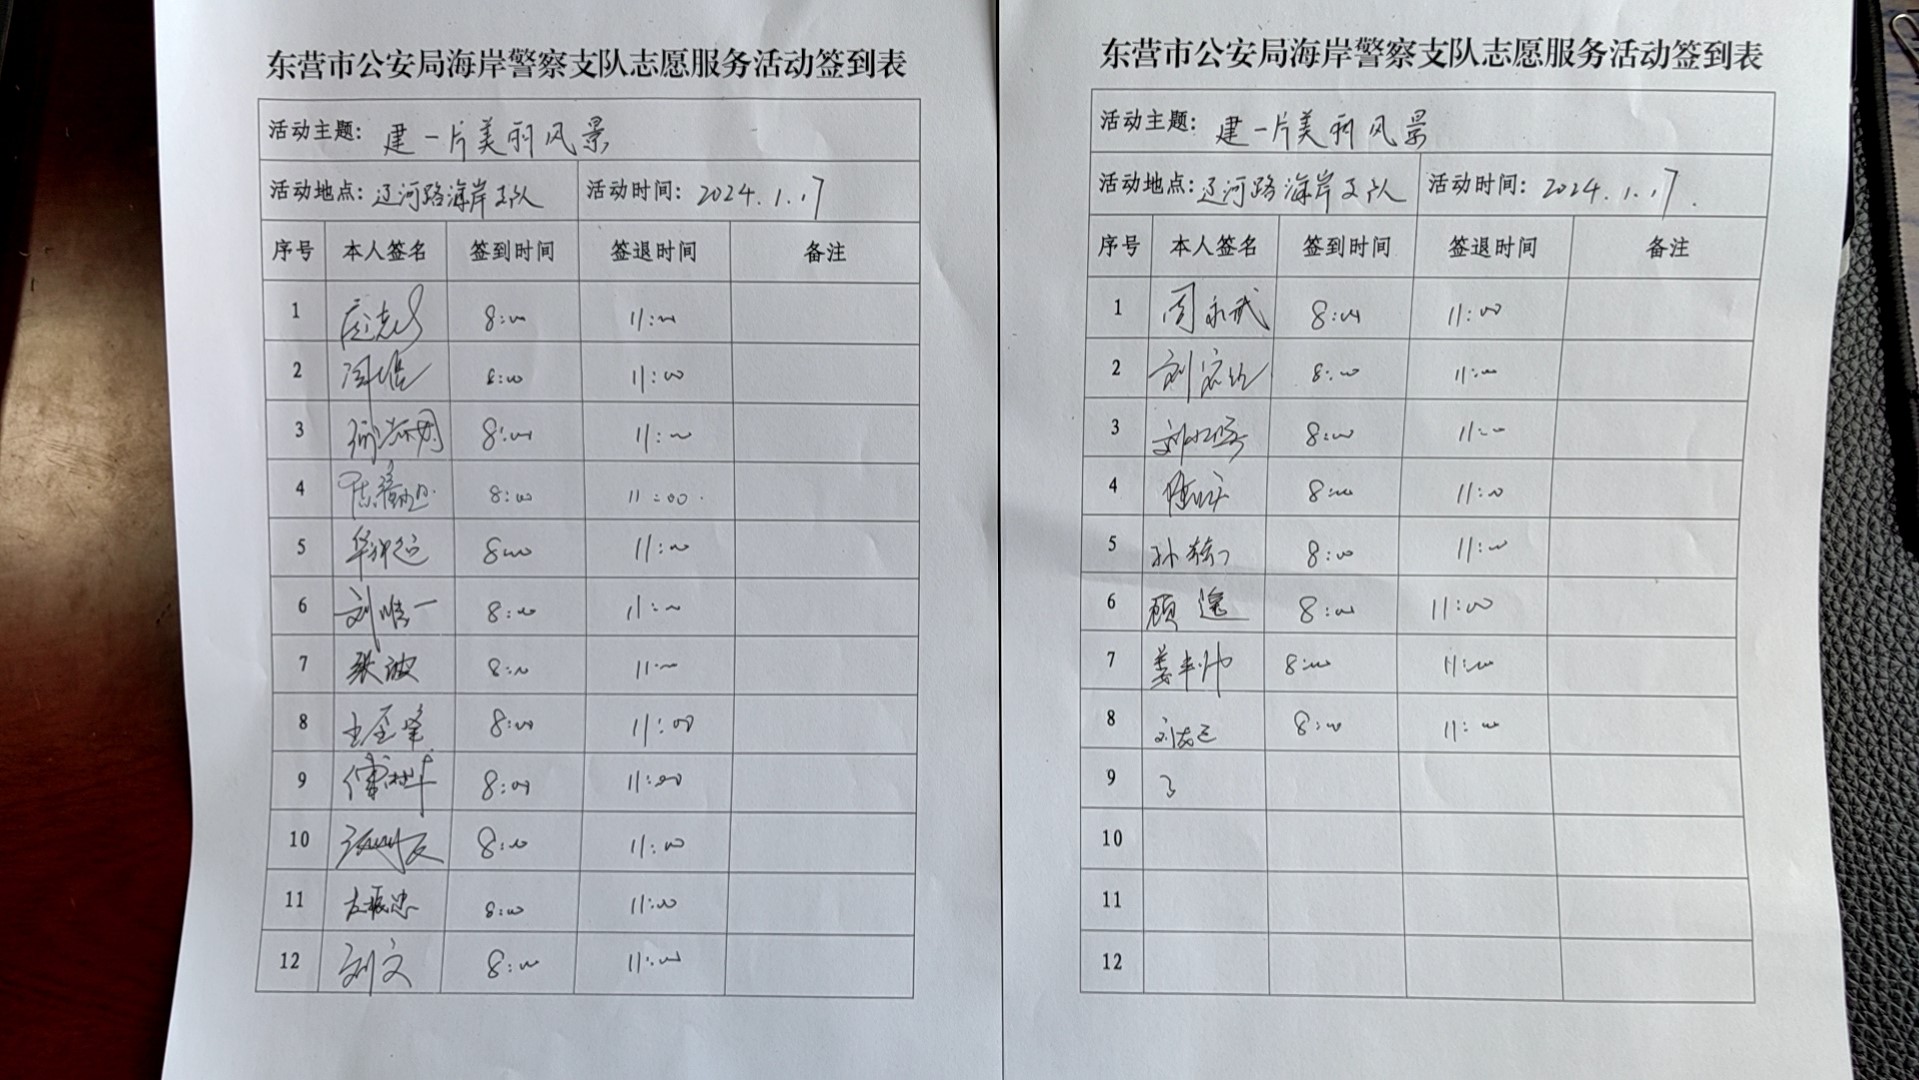 东营市公安局海岸警察支队志愿服务活动签到表
活动主题: 建一片美丽风景
活动地点: 辽河路海岸支队 活动时间: 2024.1.17
序号 本人签名 签到时间 签退时间 备注
1 8:00 11:00
2 8:00 11:00
3 8:00 11:00
4 8:00 11:00
5 8:00 11:00
6 刘惟一 8:00 11:00
7 张波 8:00 11:00
8 8:00 11:00
9 8:00 11:00
10 8:00 11:00
11 左振忠 8:00 11:00
12 刘文 8:00 11:00
东营市公安局海岸警察支队志愿服务活动签到表
活动主题: 建一片美丽风景
活动地点: 辽河路海岸支队 活动时间: 2024.1.17.
序号 本人签名 签到时间 签退时间 备注
1 周永武 8:00 11:00
2 8:00 11:00
3 8:00 11:00
4 8:00 11:00
5 8:00 11:00
6 8:00 11:00
7 姜丰帅 8:00 11:00
8 8:00 11:00
9
10
11
12